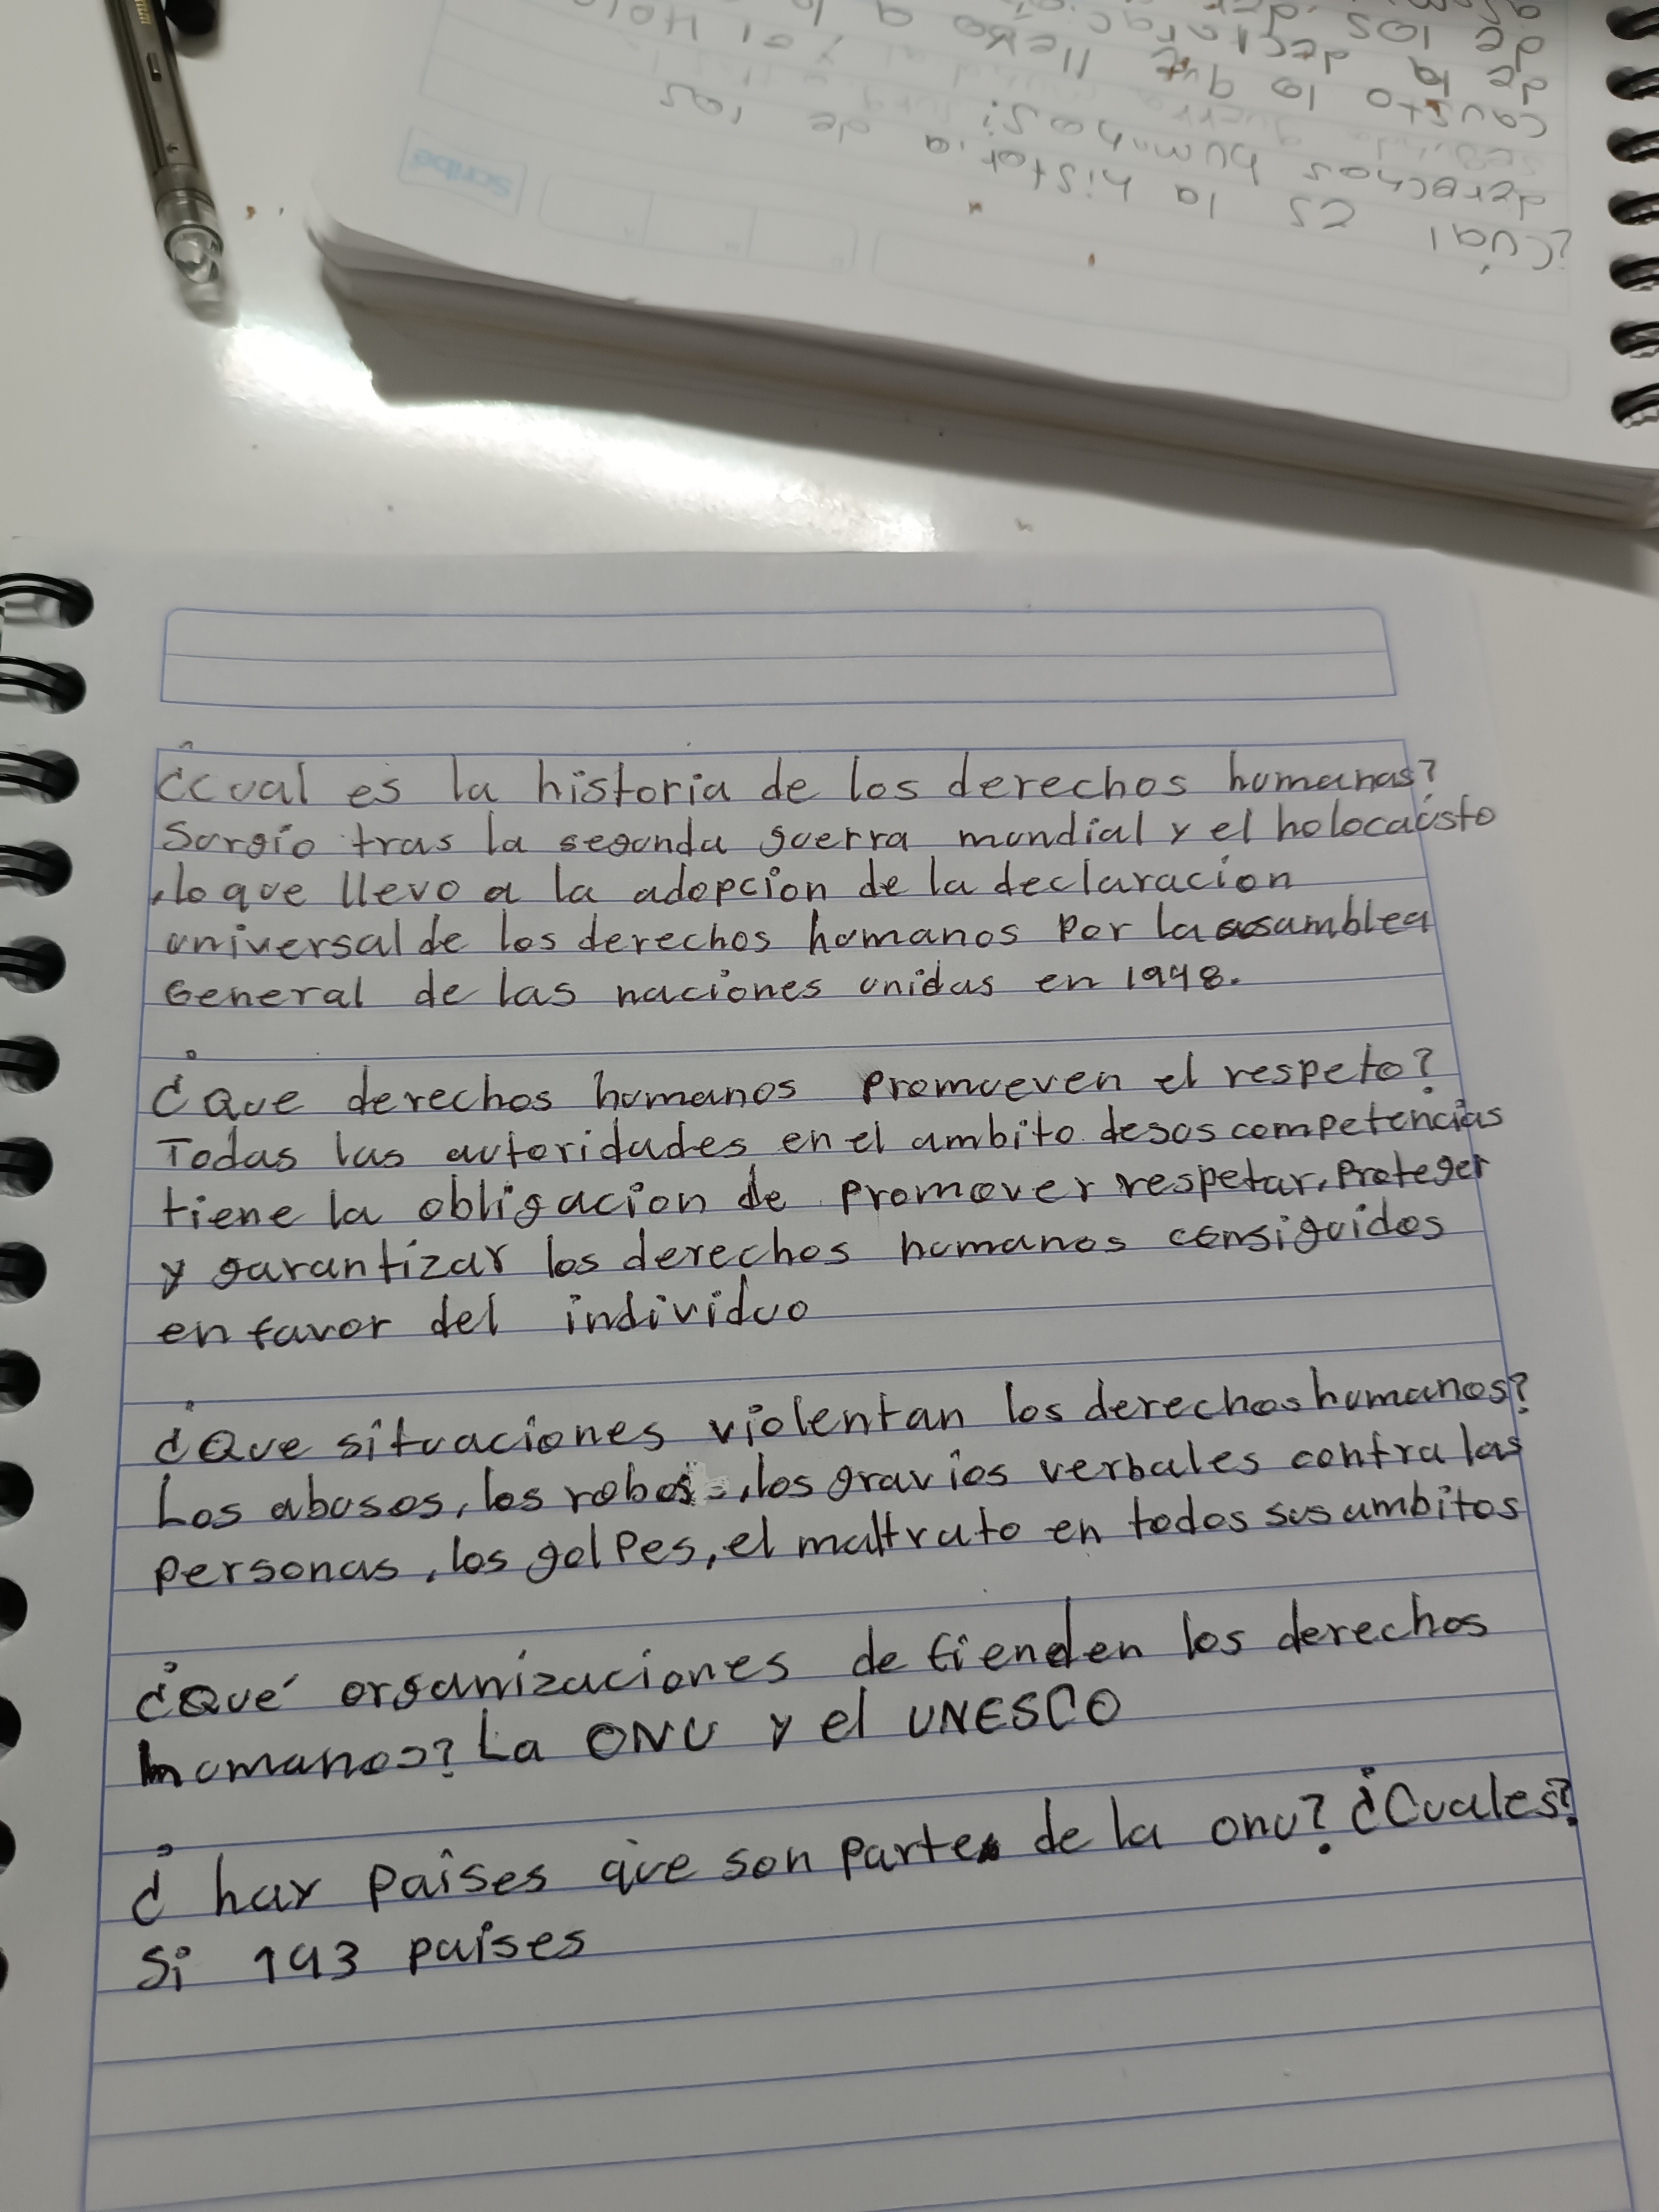 ¿Cual es la historia de los derechos humanos?
Surgio tras la segunda guerra mundial y el holocausto
, lo que llevo a la adopcion de la declaracion
universal de los derechos humanos por la asamblea
General de las naciones unidas en 1948.
¿Que derechos humanos promueven el respeto?
Todas las autoridades en el ambito de sus competencias
tiene la obligacion de promover respetar, proteger
y garantizar los derechos humanos consiguidos
en favor del individuo
¿Que situaciones violentan los derechos humanos?
Los abusos, los robos, los gravios verbales contra las
personas, los golpes, el maltrato en todos sus ambitos
¿Qué organizaciones defienden los derechos
humanos? La ONU y el UNESCO
¿hay paises que son parte de la onu? ¿Cuales?
Si 193 paises
¿Cual es la historia de los
derechos humanos?
causto lo que llevo a
de la
de los
Scribe